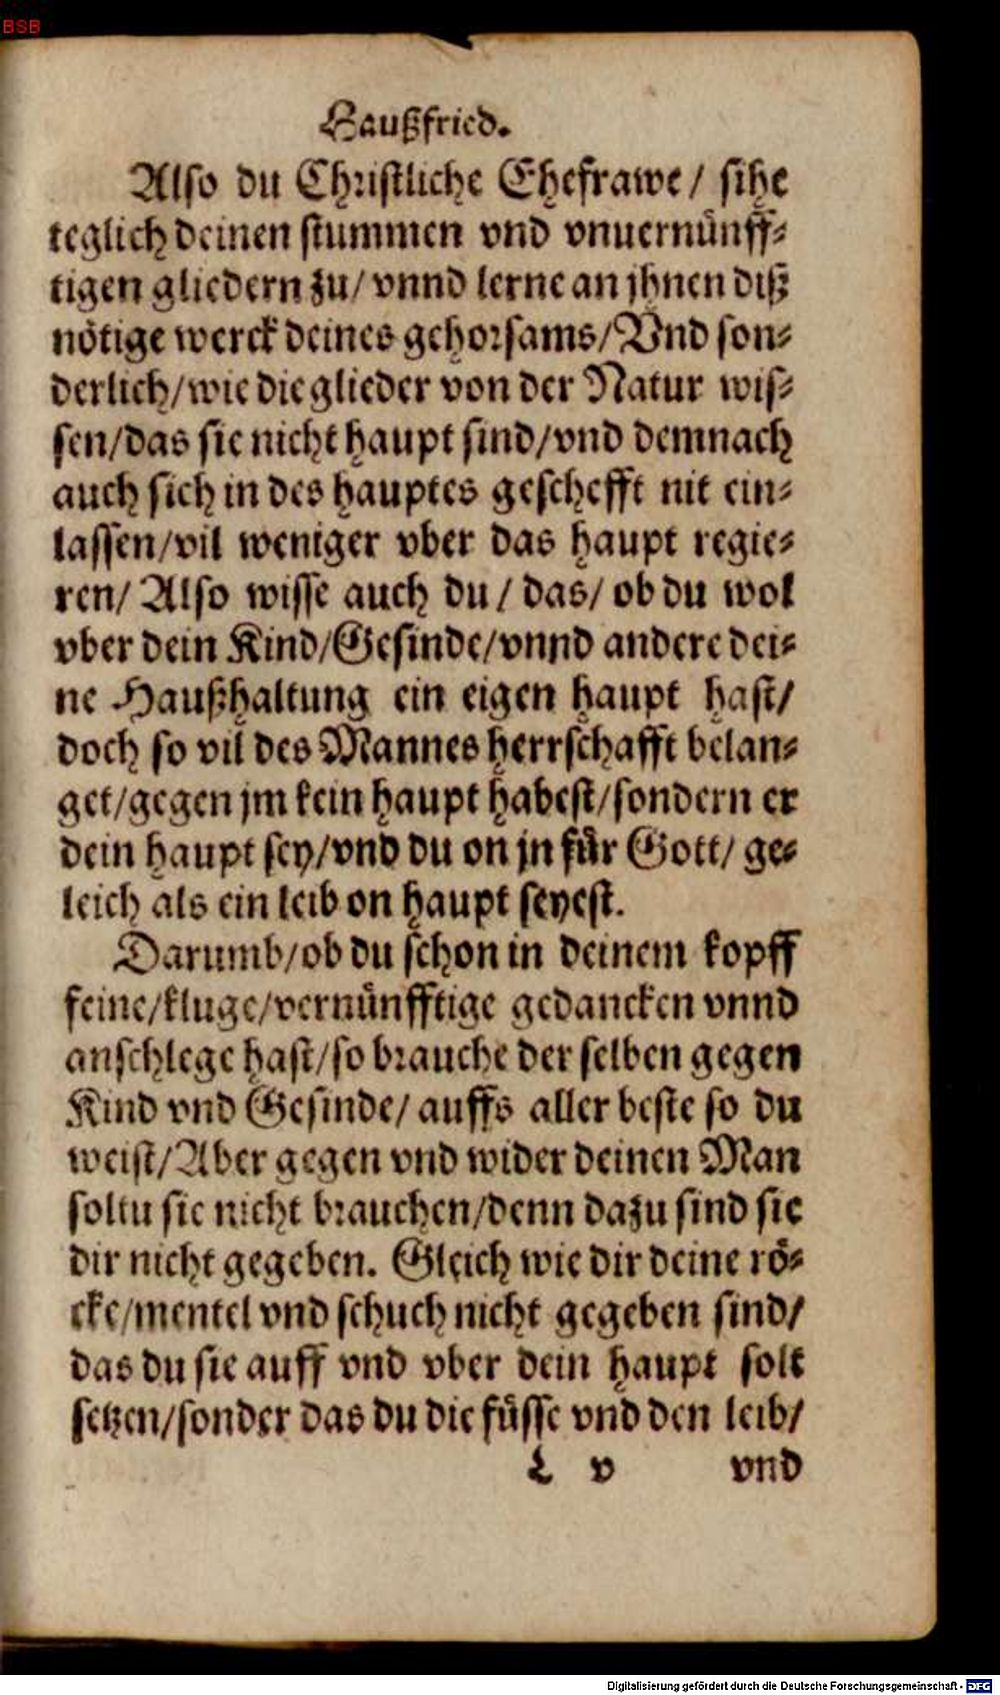 BSB
Haußfried.
Also du Christliche Ehefrawe / sihe
teglich deinen stummen vnd vnuernünff-
tigen gliedern zu/ vnnd lerne an jhnen diß
nötige werck deines gehorsams/ Vnd son-
derlich/ wie die glieder von der Natur wis-
sen/ das sie nicht haupt sind/ vnd demnach
auch sich in des hauptes geschefft nit ein-
lassen/ vil weniger vber das haupt regie-
ren/ Also wisse auch du / das/ ob du wol
vber dein Kind/ Gesinde/ vnnd andere dei-
ne Haußhaltung ein eigen haupt hast/
doch so vil des Mannes herrschafft belan-
get/ gegen jm kein haupt habest/ sondern er
dein haupt sey/ vnd du on jn für Gott/ ge-
leich als ein leib on haupt seyest.
Darumb/ ob du schon in deinem kopff
feine/ kluge/ vernünfftige gedancken vnnd
anschlege hast/ so brauche der selben gegen
Kind vnd Gesinde/ auffs aller beste so du
weist/ Aber gegen vnd wider deinen Man
soltu sie nicht brauchen/ denn dazu sind sie
dir nicht gegeben. Gleich wie dir deine rö-
cke/ mentel vnd schuch nicht gegeben sind/
das du sie auff vnd vber dein haupt solt
setzen/ sonder das du die füsse vnd den leib/
L v vnd
Digitalisierung gefördert durch die Deutsche Forschungsgemeinschaft - DFG